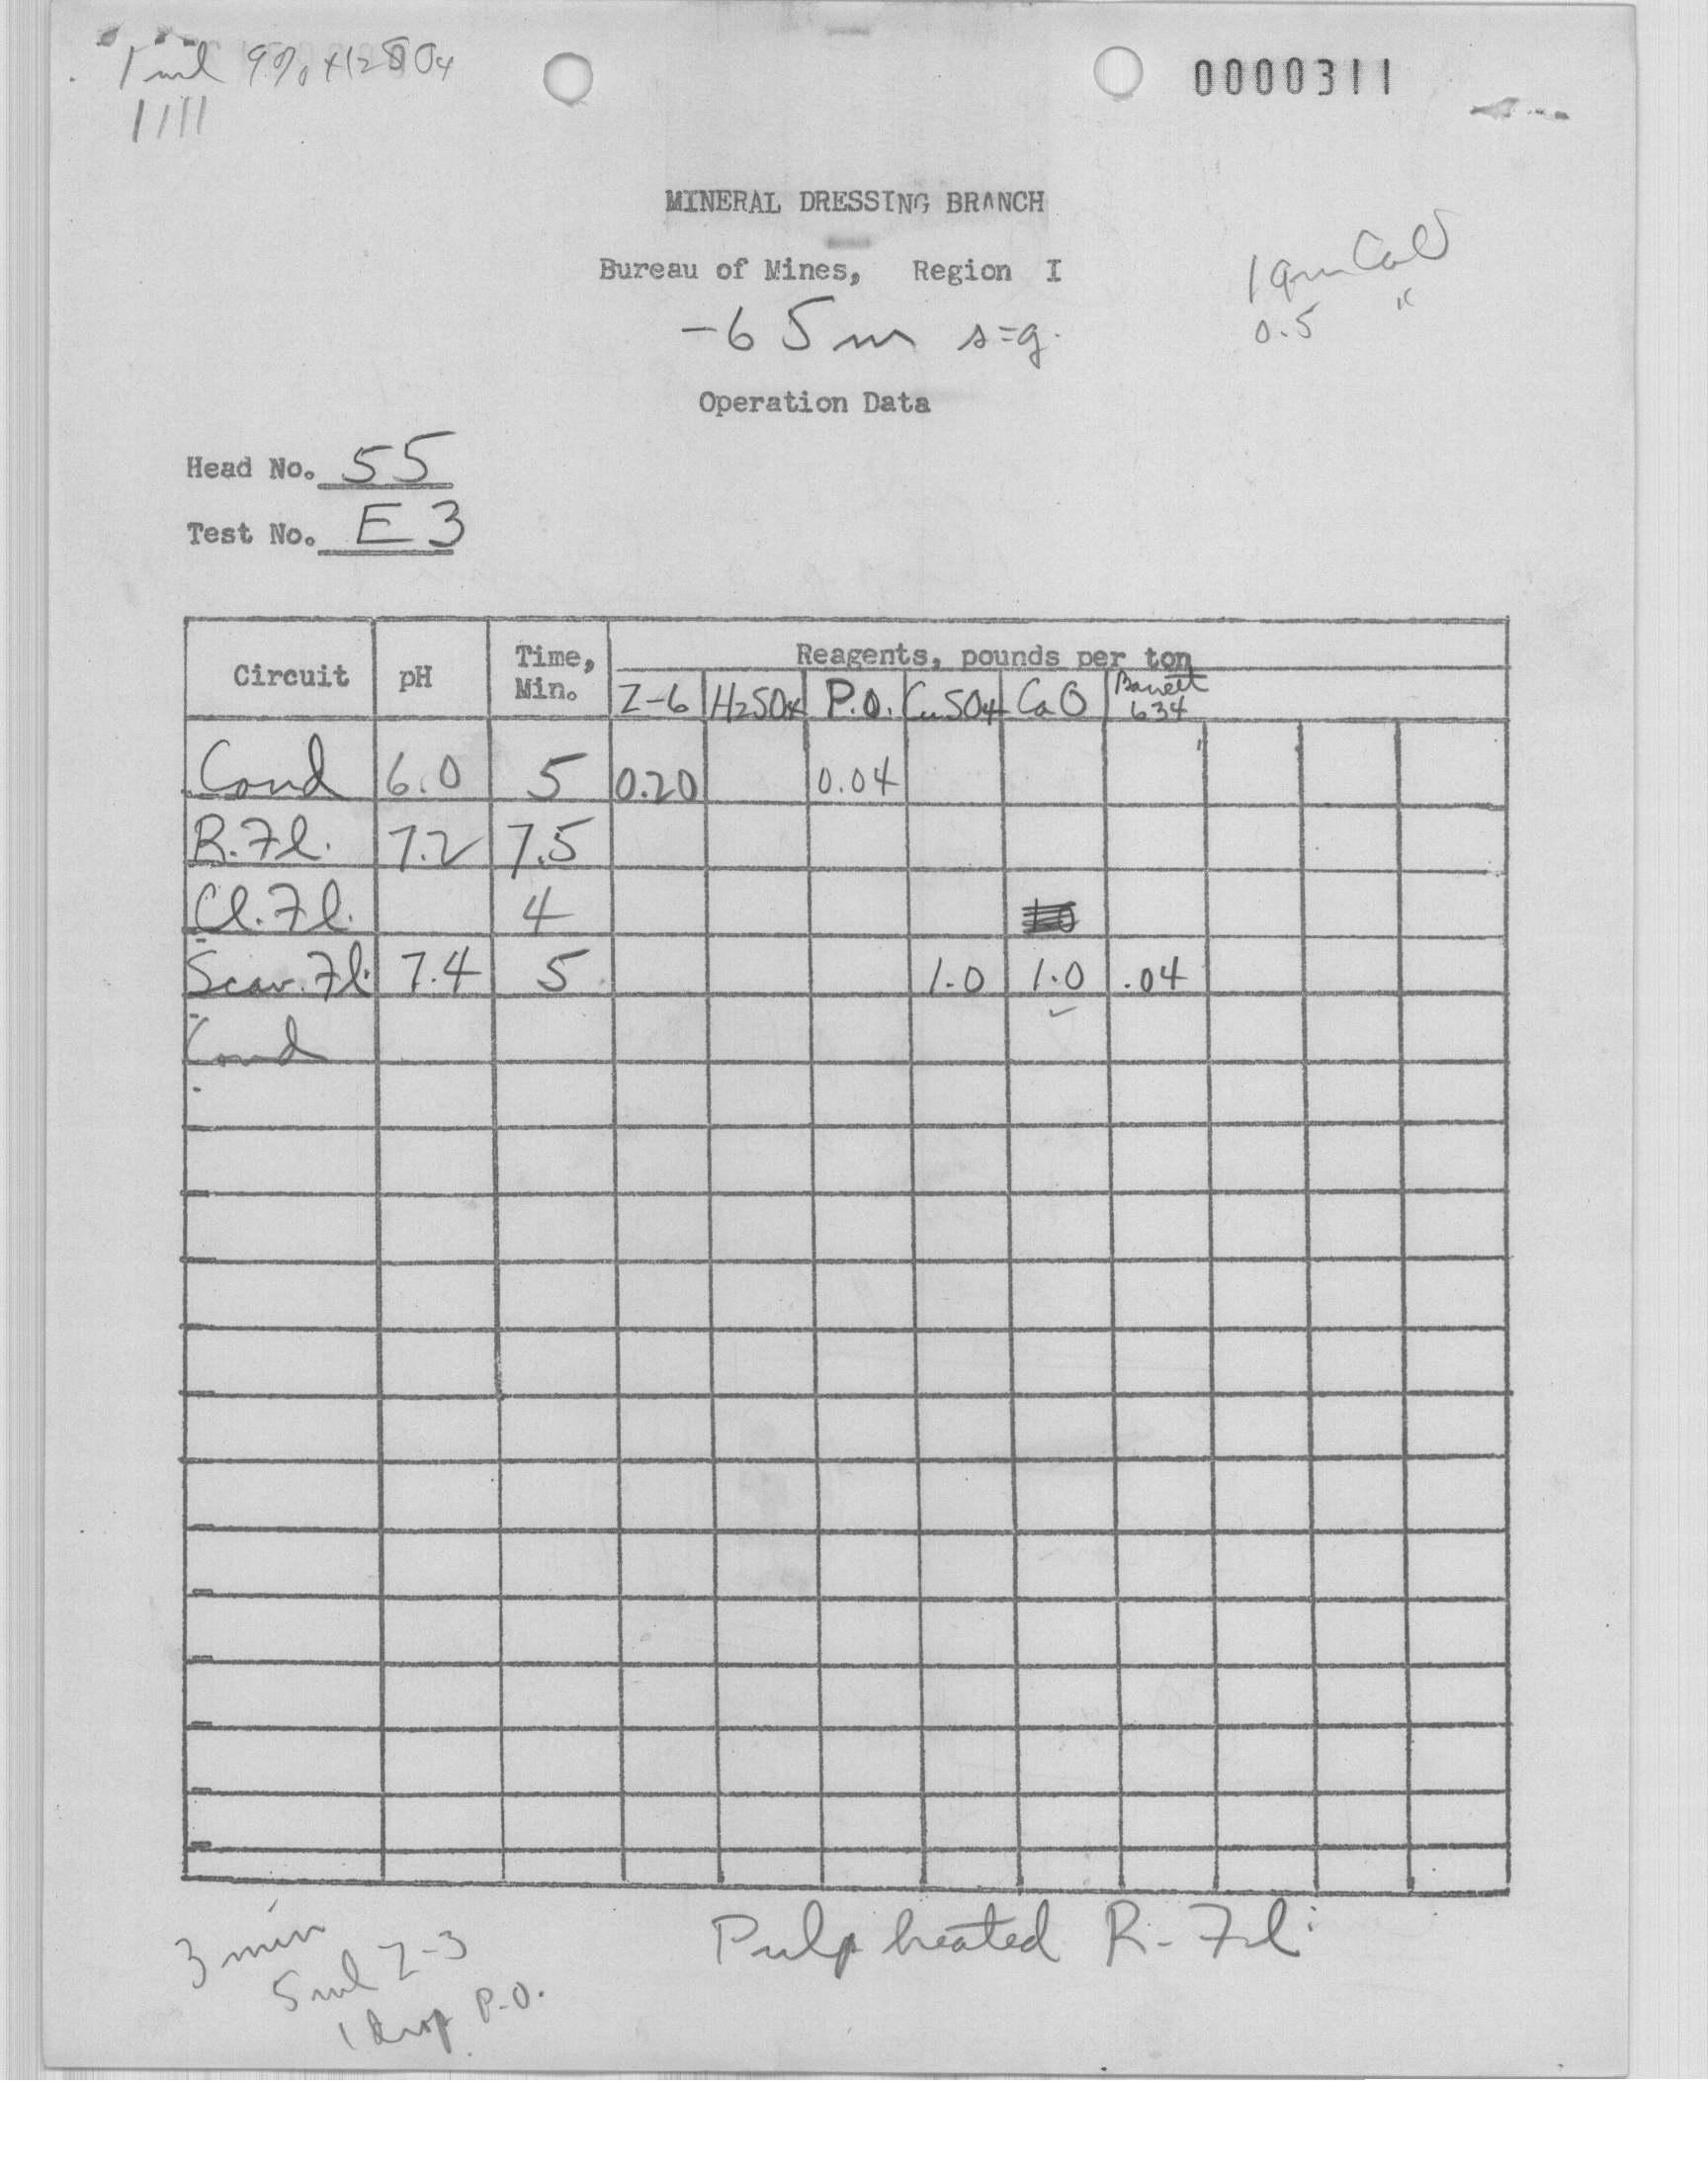 1 ml 9% H2SO4
1111
0000311
MINERAL DRESSING BRANCH
Bureau of Mines, Region I
1 gm CaO
0.5 "
-65m s=g.
Operation Data
Head No. 55
Test No. E3
Circuit pH Time, Min. Reagents, pounds per ton
Z-6 H2SO4 P.O. CuSO4 CaO Barrett 634
Cond 6.0 5 0.20 0.04
R. Fl. 7.2 7.5
Cl. Fl. 4
Scav. Fl. 7.4 5 1.0 1.0 .04
Cond
Pulp heated R. Fl.
3 min
5 ml Z-3
1 drop P.O.